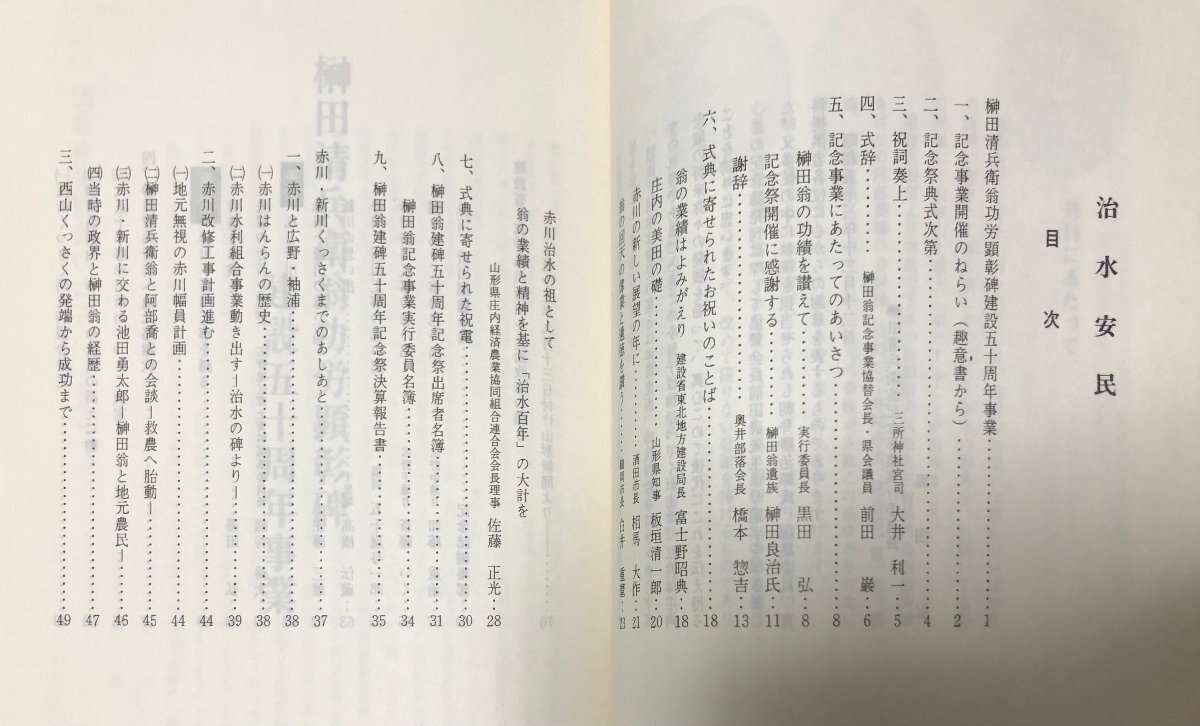 治水安民
目次
榊田清兵衛翁功労顕彰碑建設五十周年事業……1
一、記念事業開催のねらい（趣意書から）……2
二、記念祭典式次第……4
三、祝詞奏上……三所神社宮司 大井利一…5
四、式辞……榊田翁記念事業協賛会長・県会議員 前田 巌…6
五、記念事業にあたってのあいさつ……8
榊田翁の功績を讃えて……実行委員長 黒田 弘…8
記念祭開催に感謝する……榊田翁遺族 榊田良治氏…11
謝辞……奥井部落会長 橋本惣吉…13
六、式典に寄せられたお祝いのことば……18
翁の業績はよみがえり 建設省東北地方建設局長 富士野昭典…18
庄内の美田の礎……山形県知事 板垣清一郎…20
赤川の新しい展望の年に……酒田市長 相馬大作…21
翁の回天の偉業と遺徳を讃う……鶴岡市長 白井重麿…23
赤川治水の祖として
翁の業績と精神を基に「治水百年」の大計を
山形県庄内経済農業協同組合連合会会長理事 佐藤正光…28
七、式典に寄せられた祝電……30
八、榊田翁建碑五十周年記念祭出席者名簿……31
榊田翁記念事業実行委員名簿……34
九、榊田翁建碑五十周年記念祭決算報告書……35
赤川・新川くっさくまでのあしあと……37
一、赤川と広野・袖浦……38
㈠赤川はんらんの歴史……38
㈡赤川水利組合事業動き出す―治水の碑より―……39
二、赤川改修工事計画進む……44
㈠地元無視の赤川幅員計画……44
㈡榊田清兵衛翁と阿部喬との会談―救農へ胎動―……45
㈢赤川・新川に交わる池田勇太郎―榊田翁と地元農民―……46
㈣当時の政界と榊田翁の経歴……47
三、西山くっさくの発端から成功まで……49